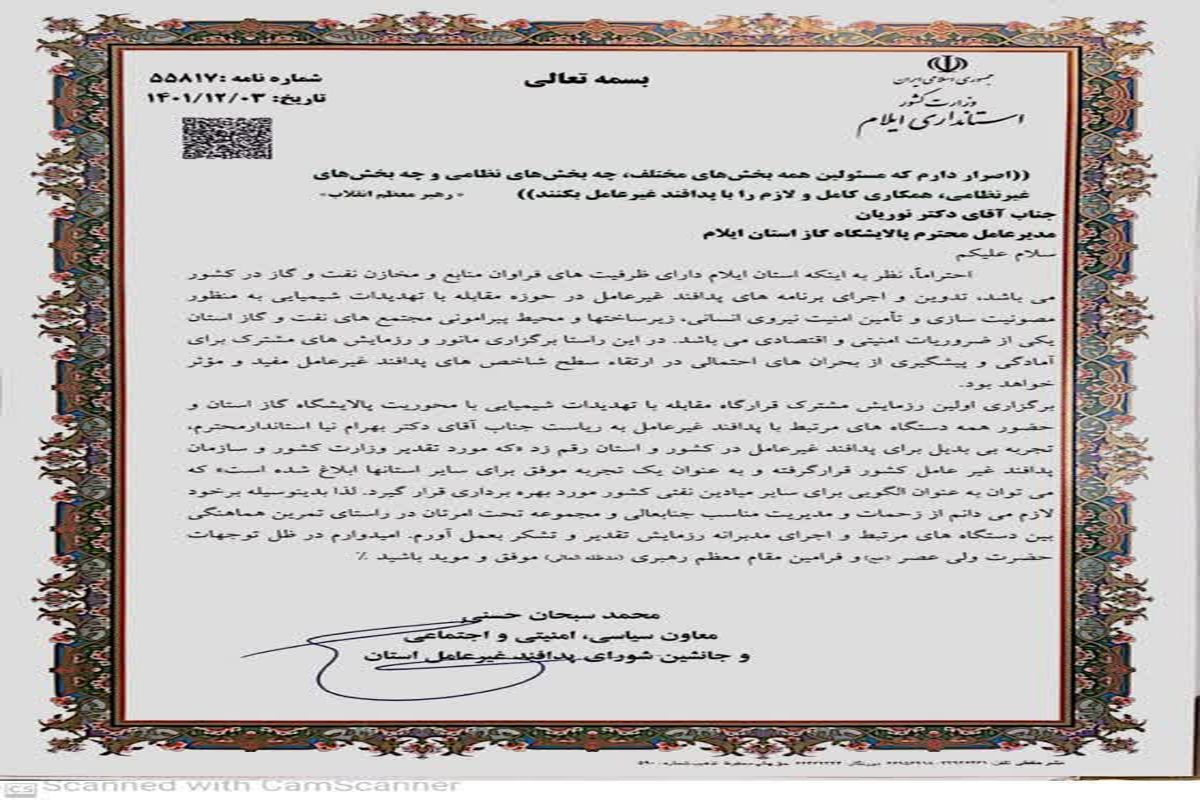 بسمه تعالی
جمهوری اسلامی ایران
وزارت کشور
استانداری ایلام
شماره نامه :۵۵۸۱۷
تاریخ: ۱۴۰۱/۱۲/۰۳
((اصرار دارم که مسئولین همه بخش‌های مختلف، چه بخش‌های نظامی و چه بخش‌های
غیرنظامی، همکاری کامل و لازم را با پدافند غیرعامل بکنند)) « رهبر معظم انقلاب»
جناب آقای دکتر نوریان
مدیرعامل محترم پالایشگاه گاز استان ایلام
سلام علیکم
احتراماً، نظر به اینکه استان ایلام دارای ظرفیت های فراوان منابع و مخازن نفت و گاز در کشور
می باشد، تدوین و اجرای برنامه های پدافند غیرعامل در حوزه مقابله با تهدیدات شیمیایی به منظور
مصونیت سازی و تأمین امنیت نیروی انسانی، زیرساختها و محیط پیرامونی مجتمع های نفت و گاز استان
یکی از ضروریات امنیتی و اقتصادی می باشد. در این راستا برگزاری مانور و رزمایش های مشترک برای
آمادگی و پیشگیری از بحران های احتمالی در ارتقاء سطح شاخص های پدافند غیرعامل مفید و مؤثر
خواهد بود.
برگزاری اولین رزمایش مشترک قرارگاه مقابله با تهدیدات شیمیایی با محوریت پالایشگاه گاز استان و
حضور همه دستگاه های مرتبط با پدافند غیرعامل به ریاست جناب آقای دکتر بهرام نیا استاندارمحترم،
تجربه بی بدیل برای پدافند غیرعامل در کشور و استان رقم زد «که مورد تقدیر وزارت کشور و سازمان
پدافند غیر عامل کشور قرارگرفته و به عنوان یک تجربه موفق برای سایر استانها ابلاغ شده است» که
می توان به عنوان الگویی برای سایر میادین نفتی کشور مورد بهره برداری قرار گیرد. لذا بدینوسیله برخود
لازم می دانم از زحمات و مدیریت مناسب جنابعالی و مجموعه تحت امرتان در راستای تمرین هماهنگی
بین دستگاه های مرتبط و اجرای مدبرانه رزمایش تقدیر و تشکر بعمل آورم. امیدوارم در ظل توجهات
حضرت ولی عصر (عج) و فرامین مقام معظم رهبری (مدظله العالی) موفق و موید باشید ٪
محمد سبحان حسنی
معاون سیاسی، امنیتی و اجتماعی
و جانشین شورای پدافند غیرعامل استان
CS Scanned with CamScanner